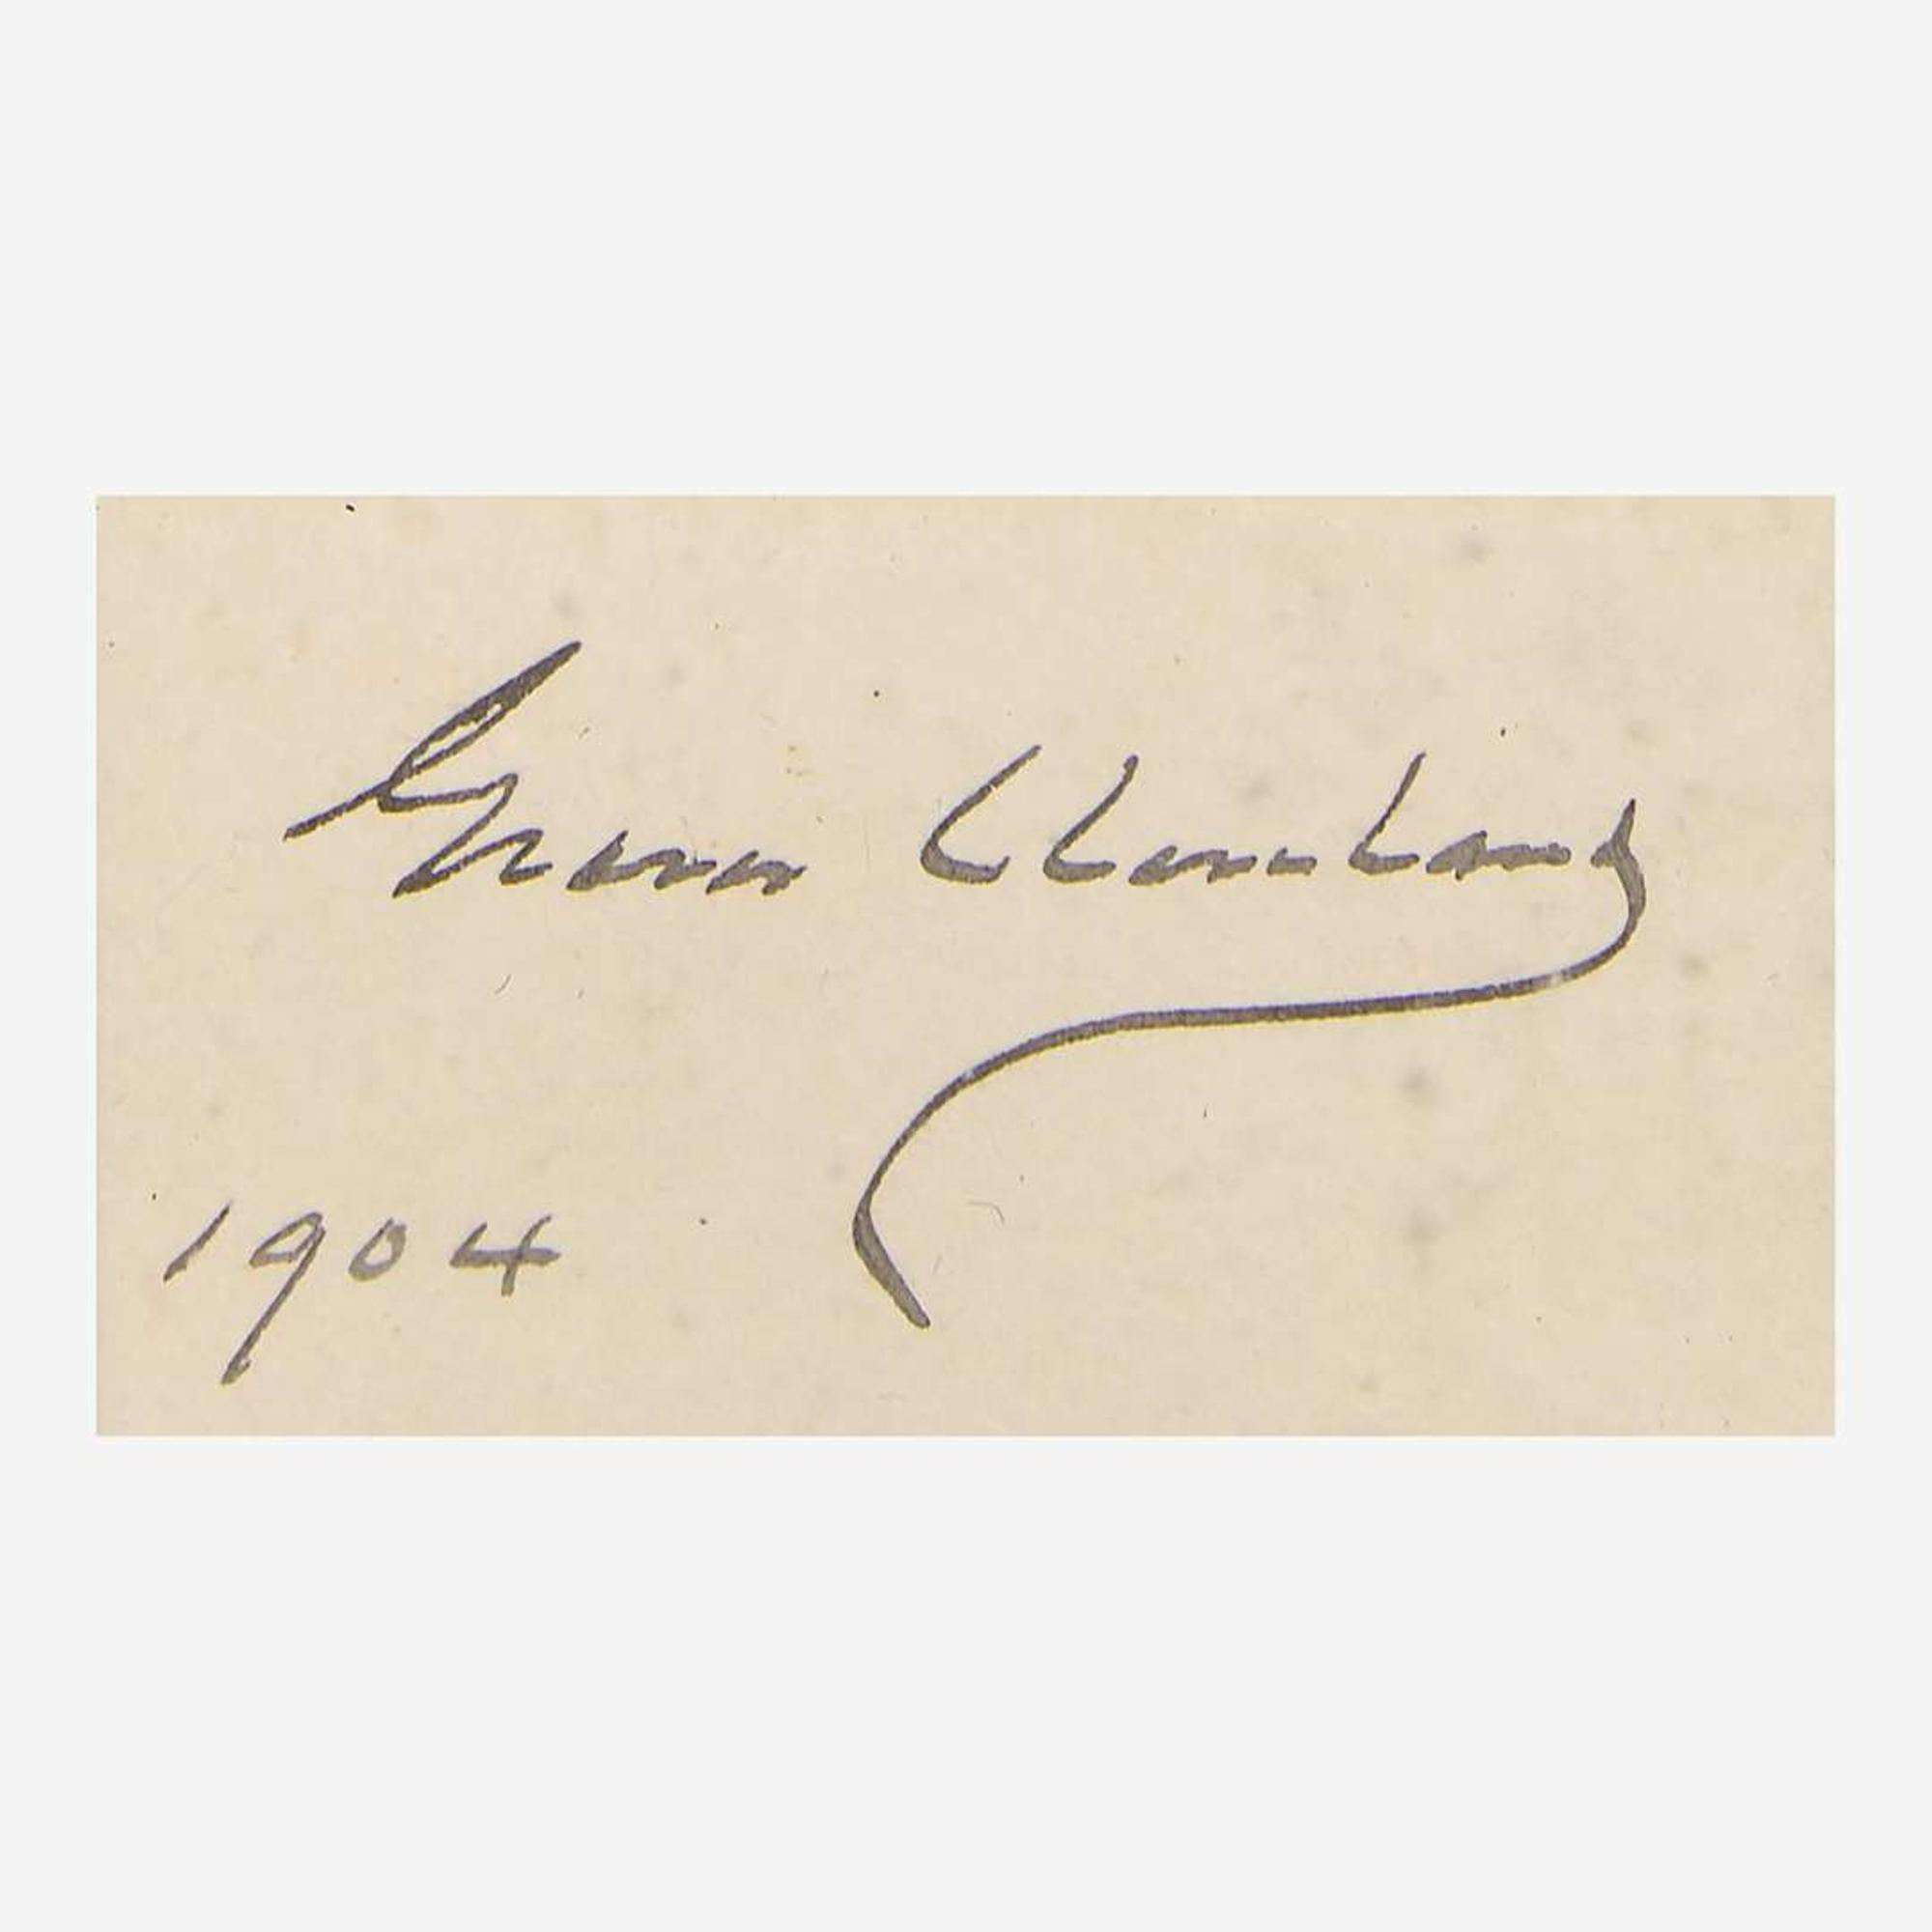 Grover Cleveland
1904